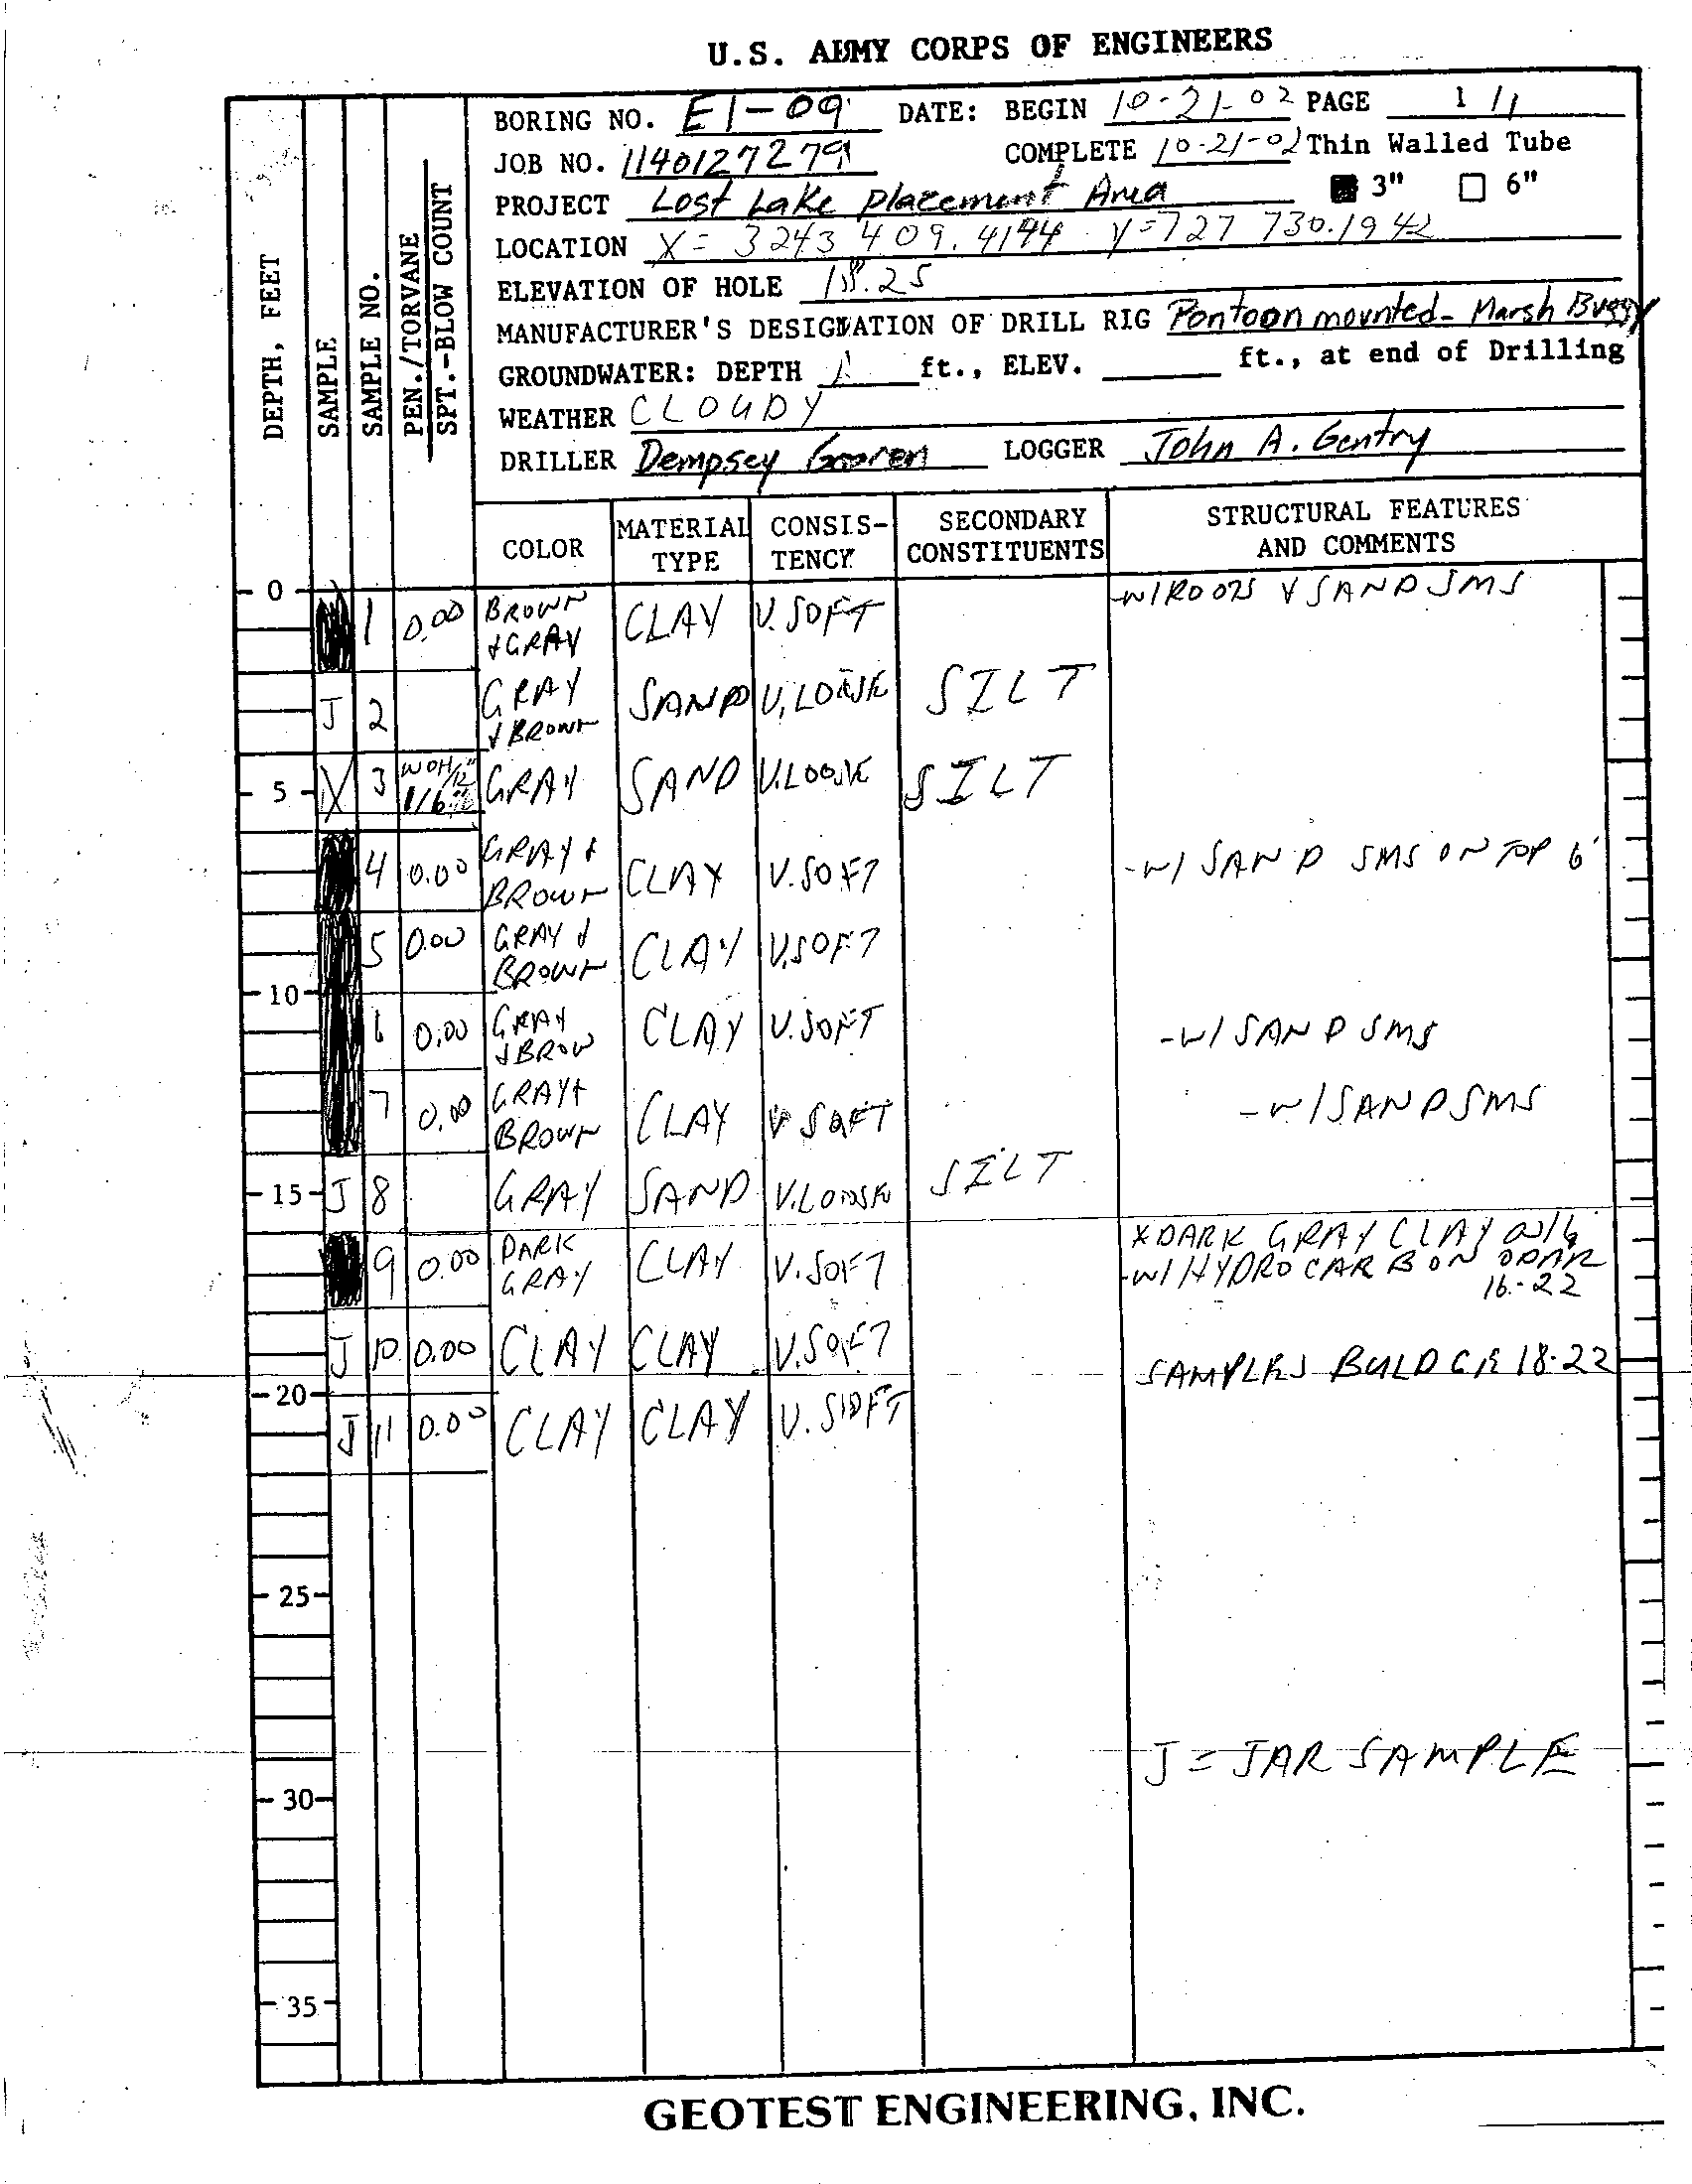 U.S. ARMY CORPS OF ENGINEERS
BORING NO. E1-09 DATE: BEGIN 10-21-02 PAGE 1/1
JOB NO. 1140127279 COMPLETE 10-21-02 Thin Walled Tube
PROJECT Lost Lake Placement Area 3" 6"
LOCATION X= 3243 409.4194 Y=727 730.1942
ELEVATION OF HOLE 18.25
MANUFACTURER'S DESIGNATION OF DRILL RIG Pontoon mounted- Marsh Buggy
GROUNDWATER: DEPTH ft., ELEV. ft., at end of Drilling
WEATHER CLOUDY
DRILLER Dempsey LOGGER John A. Gentry
DEPTH, FEET
SAMPLE
SAMPLE NO.
PEN./TORVANE
SPT.-BLOW COUNT
COLOR MATERIAL TYPE CONSIS-TENCY SECONDARY CONSTITUENTS STRUCTURAL FEATURES AND COMMENTS
0 1 0.00 BROWN & GRAY CLAY V. SOFT -W/ROOTS & SAND SMS
J 2 GRAY & BROWN SAND V. LOOSE SILT
5 X 3 WOH/12" 1/6" GRAY SAND V. LOOSE SILT
4 0.00 GRAY & BROWN CLAY V. SOFT -W/ SAND SMS ON TOP 6'
5 0.00 GRAY & BROWN CLAY V. SOFT
10
6 0.00 GRAY & BROW CLAY V. SOFT -W/ SAND SMS
7 0.00 GRAY & BROWN CLAY V SOFT -W/SAND SMS
15 J 8 GRAY SAND V. LOOSE SILT
9 0.00 DARK GRAY CLAY V. SOFT *DARK GRAY CLAY
-W/HYDROCARBON ODOR
16-22
J 10 0.00 CLAY CLAY V. SOFT SAMPLES 18-22
20
J 11 0.00 CLAY CLAY V. SOFT
25
J = JAR SAMPLE
30
35
GEOTEST ENGINEERING, INC.